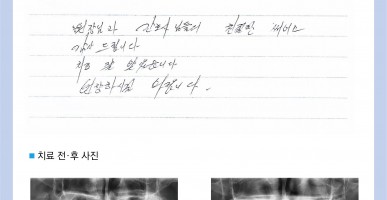 원장님과 간호사님들의 친절한 써비스
감사 드립니다
치료 잘 받았습니다
번창하시길 바랍니다.
치료 전·후 사진